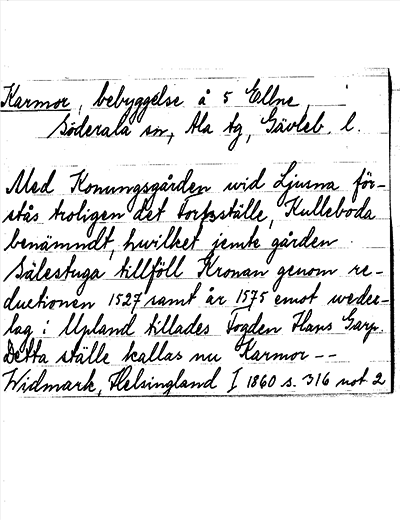 Karmor, bebyggelse å 5 Ellne
Söderala sn, Ala tg, Gävleb. l.
Med Konungsgården wid Ljusna för-
stås troligen det Torpställe, Kulleboda
benämndt, hwilket jemte gården
Sälestuga tillföll Kronan genom re-
ductionen 1527 samt år 1575 emot weder-
lag i Upland tillades Fogden Hans Garp.
Detta ställe kallas nu Karmor --
Widmark, Helsingland I 1860 s. 316 not 2